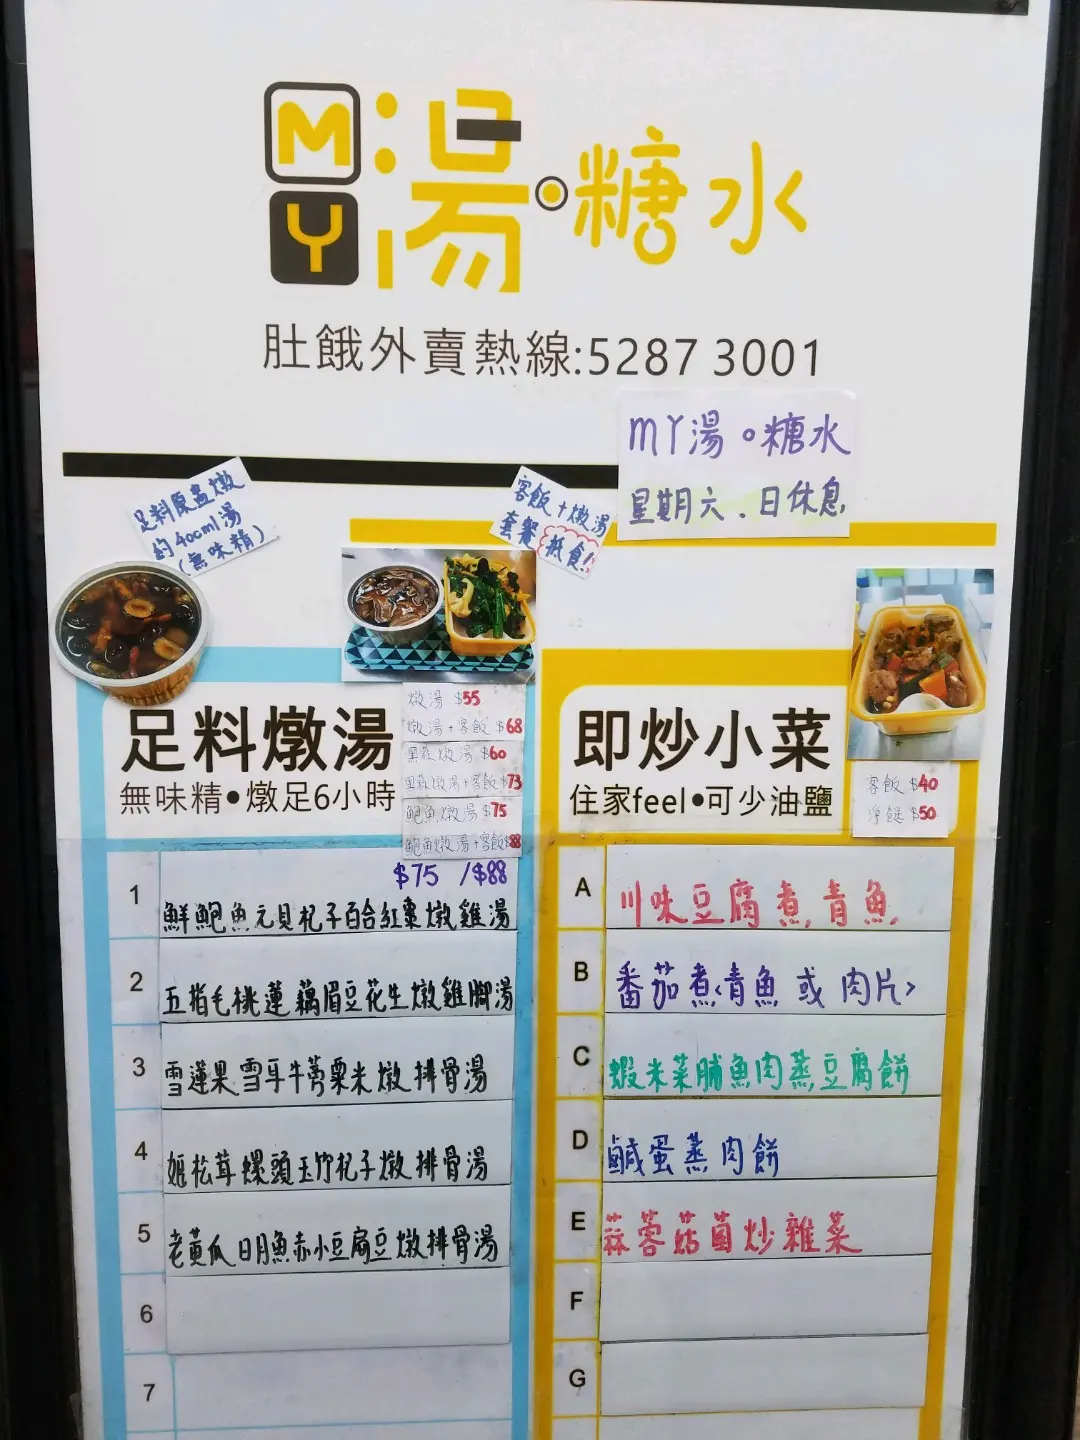 MY湯·糖水
肚餓外賣熱線:5287 3001
MY湯。糖水
星期六.日休息
足料原盅燉
約400ml湯
(無味精)
客飯+燉湯
套餐抵食!
足料燉湯
無味精•燉足6小時
燉湯 $55
燉湯+客飯 $68
黑蒜燉湯 $60
黑蒜燉湯+客飯 $73
鮑魚燉湯 $75
鮑魚燉湯+客飯$88
$75 /$88
1 鮮鮑魚元貝杞子百合紅棗燉雞湯
2 五指毛桃蓮藕眉豆花生燉雞腳湯
3 雪蓮果雪耳牛蒡粟米燉排骨湯
4 姬松茸螺頭玉竹杞子燉排骨湯
5 老黃瓜日月魚赤小豆扁豆燉排骨湯
6
7
即炒小菜
住家feel•可少油鹽
客飯 $40
淨餸 $50
A 川味豆腐煮青魚
B 番茄煮<青魚或肉片>
C 蝦米菜脯魚肉蒸豆腐餅
D 鹹蛋蒸肉餅
E 蒜蓉菇菌炒雜菜
F
G